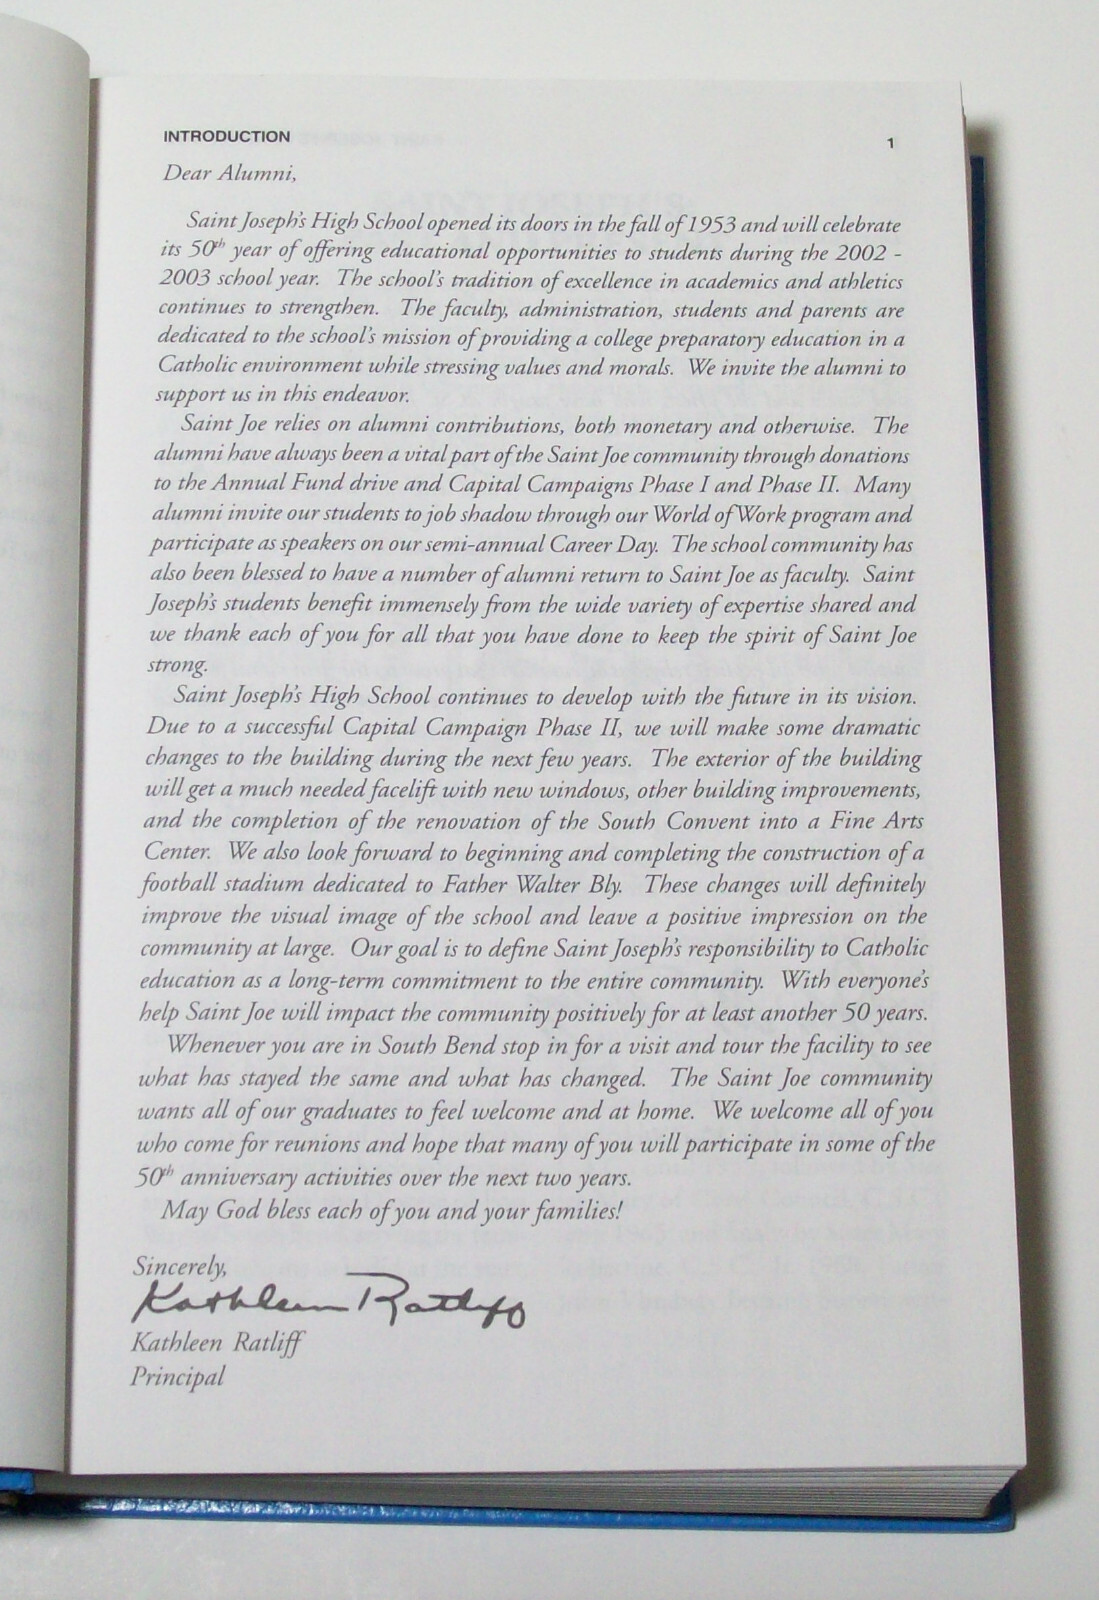 INTRODUCTION 1
Dear Alumni,
Saint Joseph's High School opened its doors in the fall of 1953 and will celebrate
its 50th year of offering educational opportunities to students during the 2002 -
2003 school year. The school's tradition of excellence in academics and athletics
continues to strengthen. The faculty, administration, students and parents are
dedicated to the school's mission of providing a college preparatory education in a
Catholic environment while stressing values and morals. We invite the alumni to
support us in this endeavor.
Saint Joe relies on alumni contributions, both monetary and otherwise. The
alumni have always been a vital part of the Saint Joe community through donations
to the Annual Fund drive and Capital Campaigns Phase I and Phase II. Many
alumni invite our students to job shadow through our World of Work program and
participate as speakers on our semi-annual Career Day. The school community has
also been blessed to have a number of alumni return to Saint Joe as faculty. Saint
Joseph's students benefit immensely from the wide variety of expertise shared and
we thank each of you for all that you have done to keep the spirit of Saint Joe
strong.
Saint Joseph's High School continues to develop with the future in its vision.
Due to a successful Capital Campaign Phase II, we will make some dramatic
changes to the building during the next few years. The exterior of the building
will get a much needed facelift with new windows, other building improvements,
and the completion of the renovation of the South Convent into a Fine Arts
Center. We also look forward to beginning and completing the construction of a
football stadium dedicated to Father Walter Bly. These changes will definitely
improve the visual image of the school and leave a positive impression on the
community at large. Our goal is to define Saint Joseph's responsibility to Catholic
education as a long-term commitment to the entire community. With everyone's
help Saint Joe will impact the community positively for at least another 50 years.
Whenever you are in South Bend stop in for a visit and tour the facility to see
what has stayed the same and what has changed. The Saint Joe community
wants all of our graduates to feel welcome and at home. We welcome all of you
who come for reunions and hope that many of you will participate in some of the
50th anniversary activities over the next two years.
May God bless each of you and your families!
Sincerely,
Kathleen Ratliff
Kathleen Ratliff
Principal